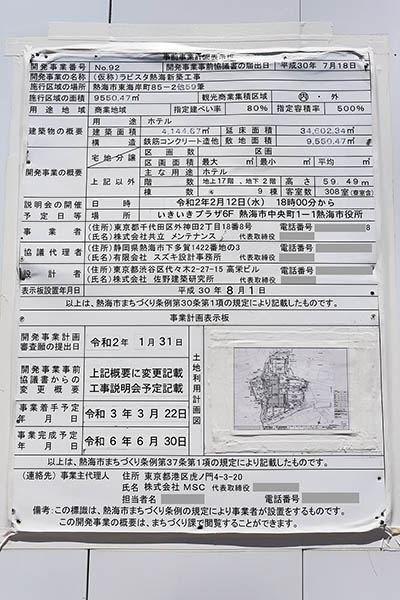 事前事業計画表示板
開発事業番号 No.92 開発事業事前協議書の届出日 平成30年 7月18日
開発事業の名称 (仮称)ラビスタ熱海新築工事
施行区域の場所 熱海市東海岸町85-2他59筆
施行区域の面積 9550.47㎡ 観光商業集積区域 内・外
用途地域 商業地域 指定建ぺい率 80% 指定容積率 500%
建築物の概要 用途 ホテル
建築面積 4,144.67㎡ 延床面積 34,602.34㎡
構造 鉄筋コンクリート造他 敷地面積 9,550.47㎡
開発事業の概要 宅地分譲 区画数 区画
区画面積 最大 ㎡ 最小 ㎡ 平均 ㎡
上記以外 主な用途 ホテル
階数 地上17階、地下2階 高さ 59.49m
棟数 9棟 客室数 308室
説明会の開催予定日等 日時 令和2年2月12日(水) 18時00分から
場所 いきいきプラザ6F 熱海市中央町1-1熱海市役所
事業者 (住所)東京都千代田区外神田2丁目18番8号 電話番号
(氏名)株式会社 共立 メンテナンス 代表取締役
協議代理者 (住所)静岡県熱海市下多賀1422番地の3 電話番号
(氏名)有限会社 スズキ設計事務所 代表取締役
設計者 (住所)東京都渋谷区代々木2-27-15 高栄ビル 電話番号
(氏名)株式会社 佐野建築研究所 代表取締役
表示板設置年月日 平成30年8月1日
以上は、熱海市まちづくり条例第30条第1項の規定により記載したものです。
事業計画表示板
開発事業計画審査願の提出日 令和2年 1月31日
開発事業事前協議書からの変更概要 上記概要に変更記載
工事説明会予定記載
事業着手予定年月日 令和3年3月22日
事業完成予定年月日 令和6年6月30日
土地利用計画図
以上は、熱海市まちづくり条例第37条第1項の規定により記載したものです。
(連絡先)事業主代理人 住所 東京都港区虎ノ門4-3-20
氏名 株式会社 MSC 代表取締役
担当者名 電話番号
備考:この標識は、熱海市まちづくり条例の規定により事業者が設置をするものです。
この開発事業の概要は、まちづくり課で閲覧することができます。